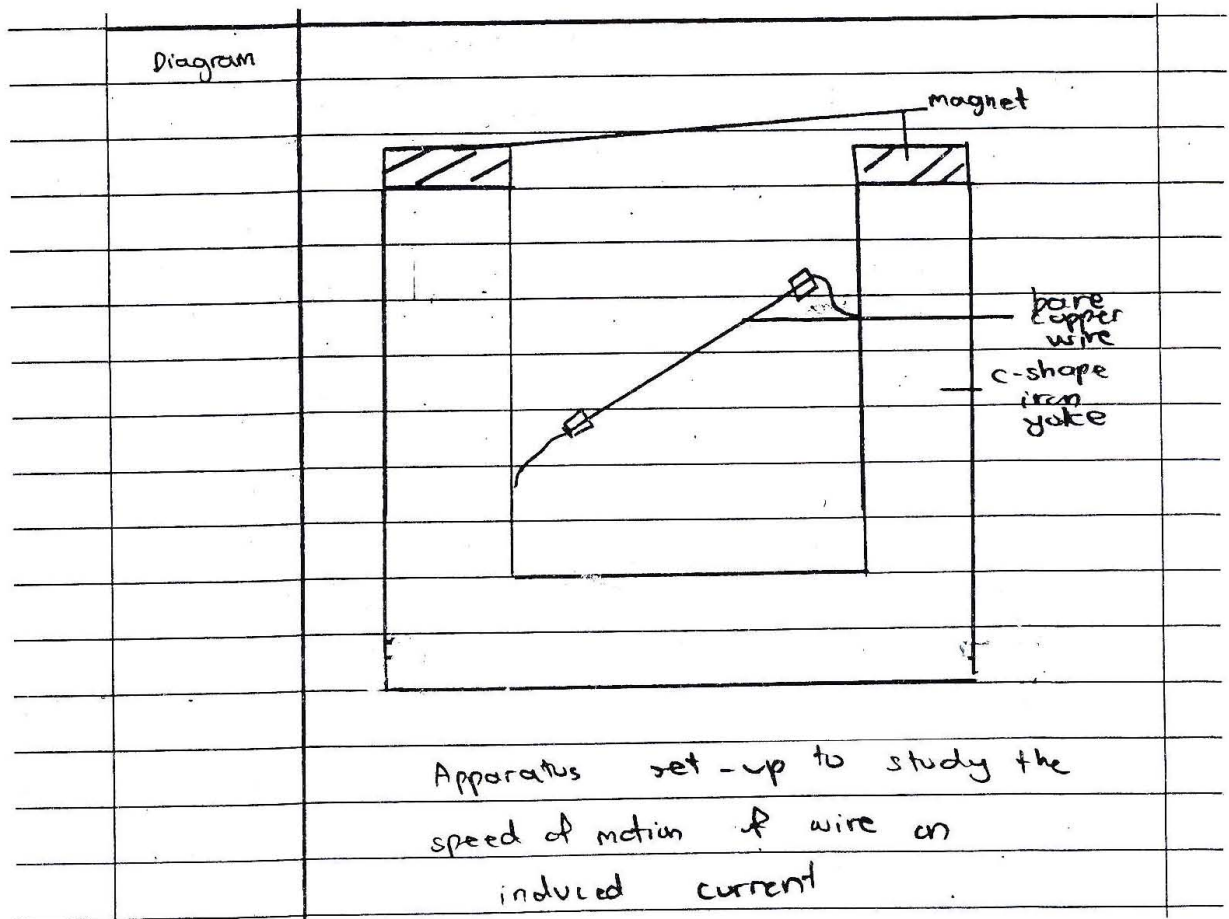 Diagram
magnet
bare
copper
wire
c-shape
iron
yoke
Apparatus set-up to study the
speed of motion of wire on
induced current